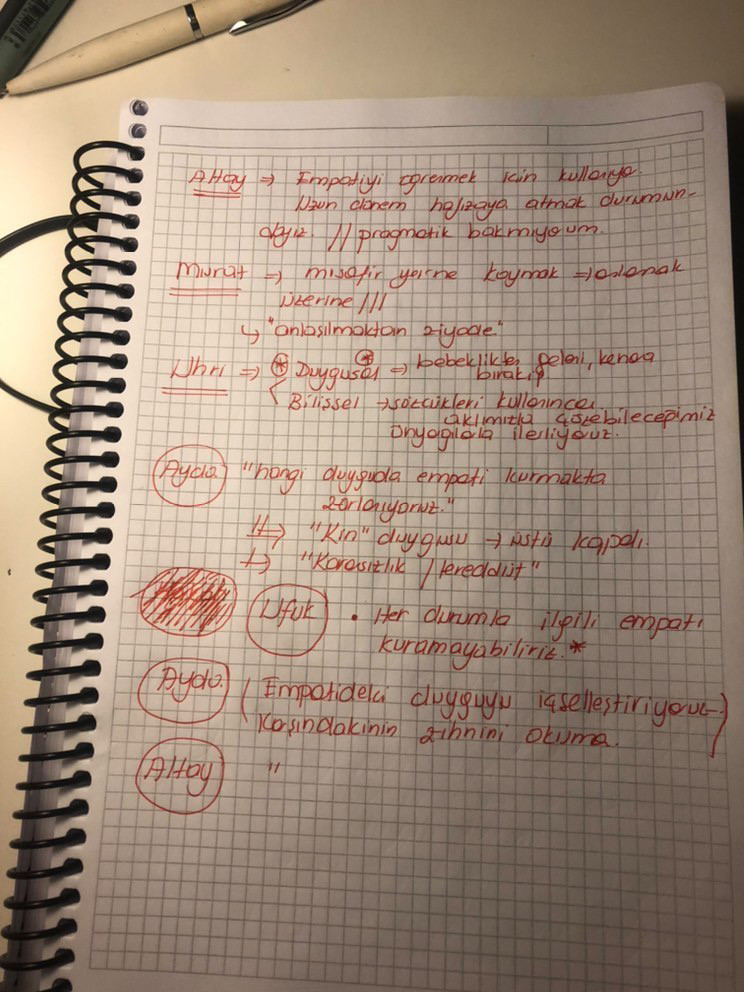 Altay => Empatiyi öğrenmek için kullanıyo.
Uzun dönem hafızaya atmak durumun-
dayız. // pragmatik bakmıyoum.
Murat => misafir yerine koymak => anlamak
üzerine ///
↳ "anlaşılmaktan ziyade"
Uhri => * Duygusal * => bebeklikten gelen, kenara
bırakıp
Bilişsel → sözcükleri kullanınca
aklımızla çözebileceğimiz
önyargılarla ilerliyoruz.
Ayda "hangi duyguda empati kurmakta
zorlanıyoruz."
"Kin" duygusu → üstü kapalı.
"Kararsızlık / tereddüt"
Ufuk • Her durumla ilgili empati
kuramayabiliriz. *
Ayda (Empatideki duyguyu içselleştiriyoruz-
Karşındakinin zihnini okuma. )
Altay "